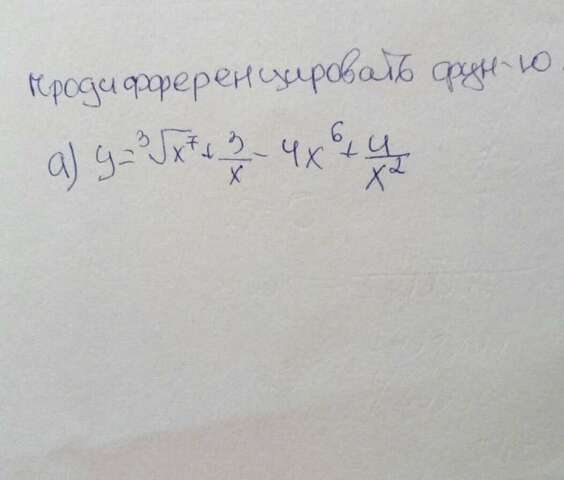 продифференцировать фун-ю.
а) y = ³√x⁷ + 3/x - 4x⁶ + 4/x²